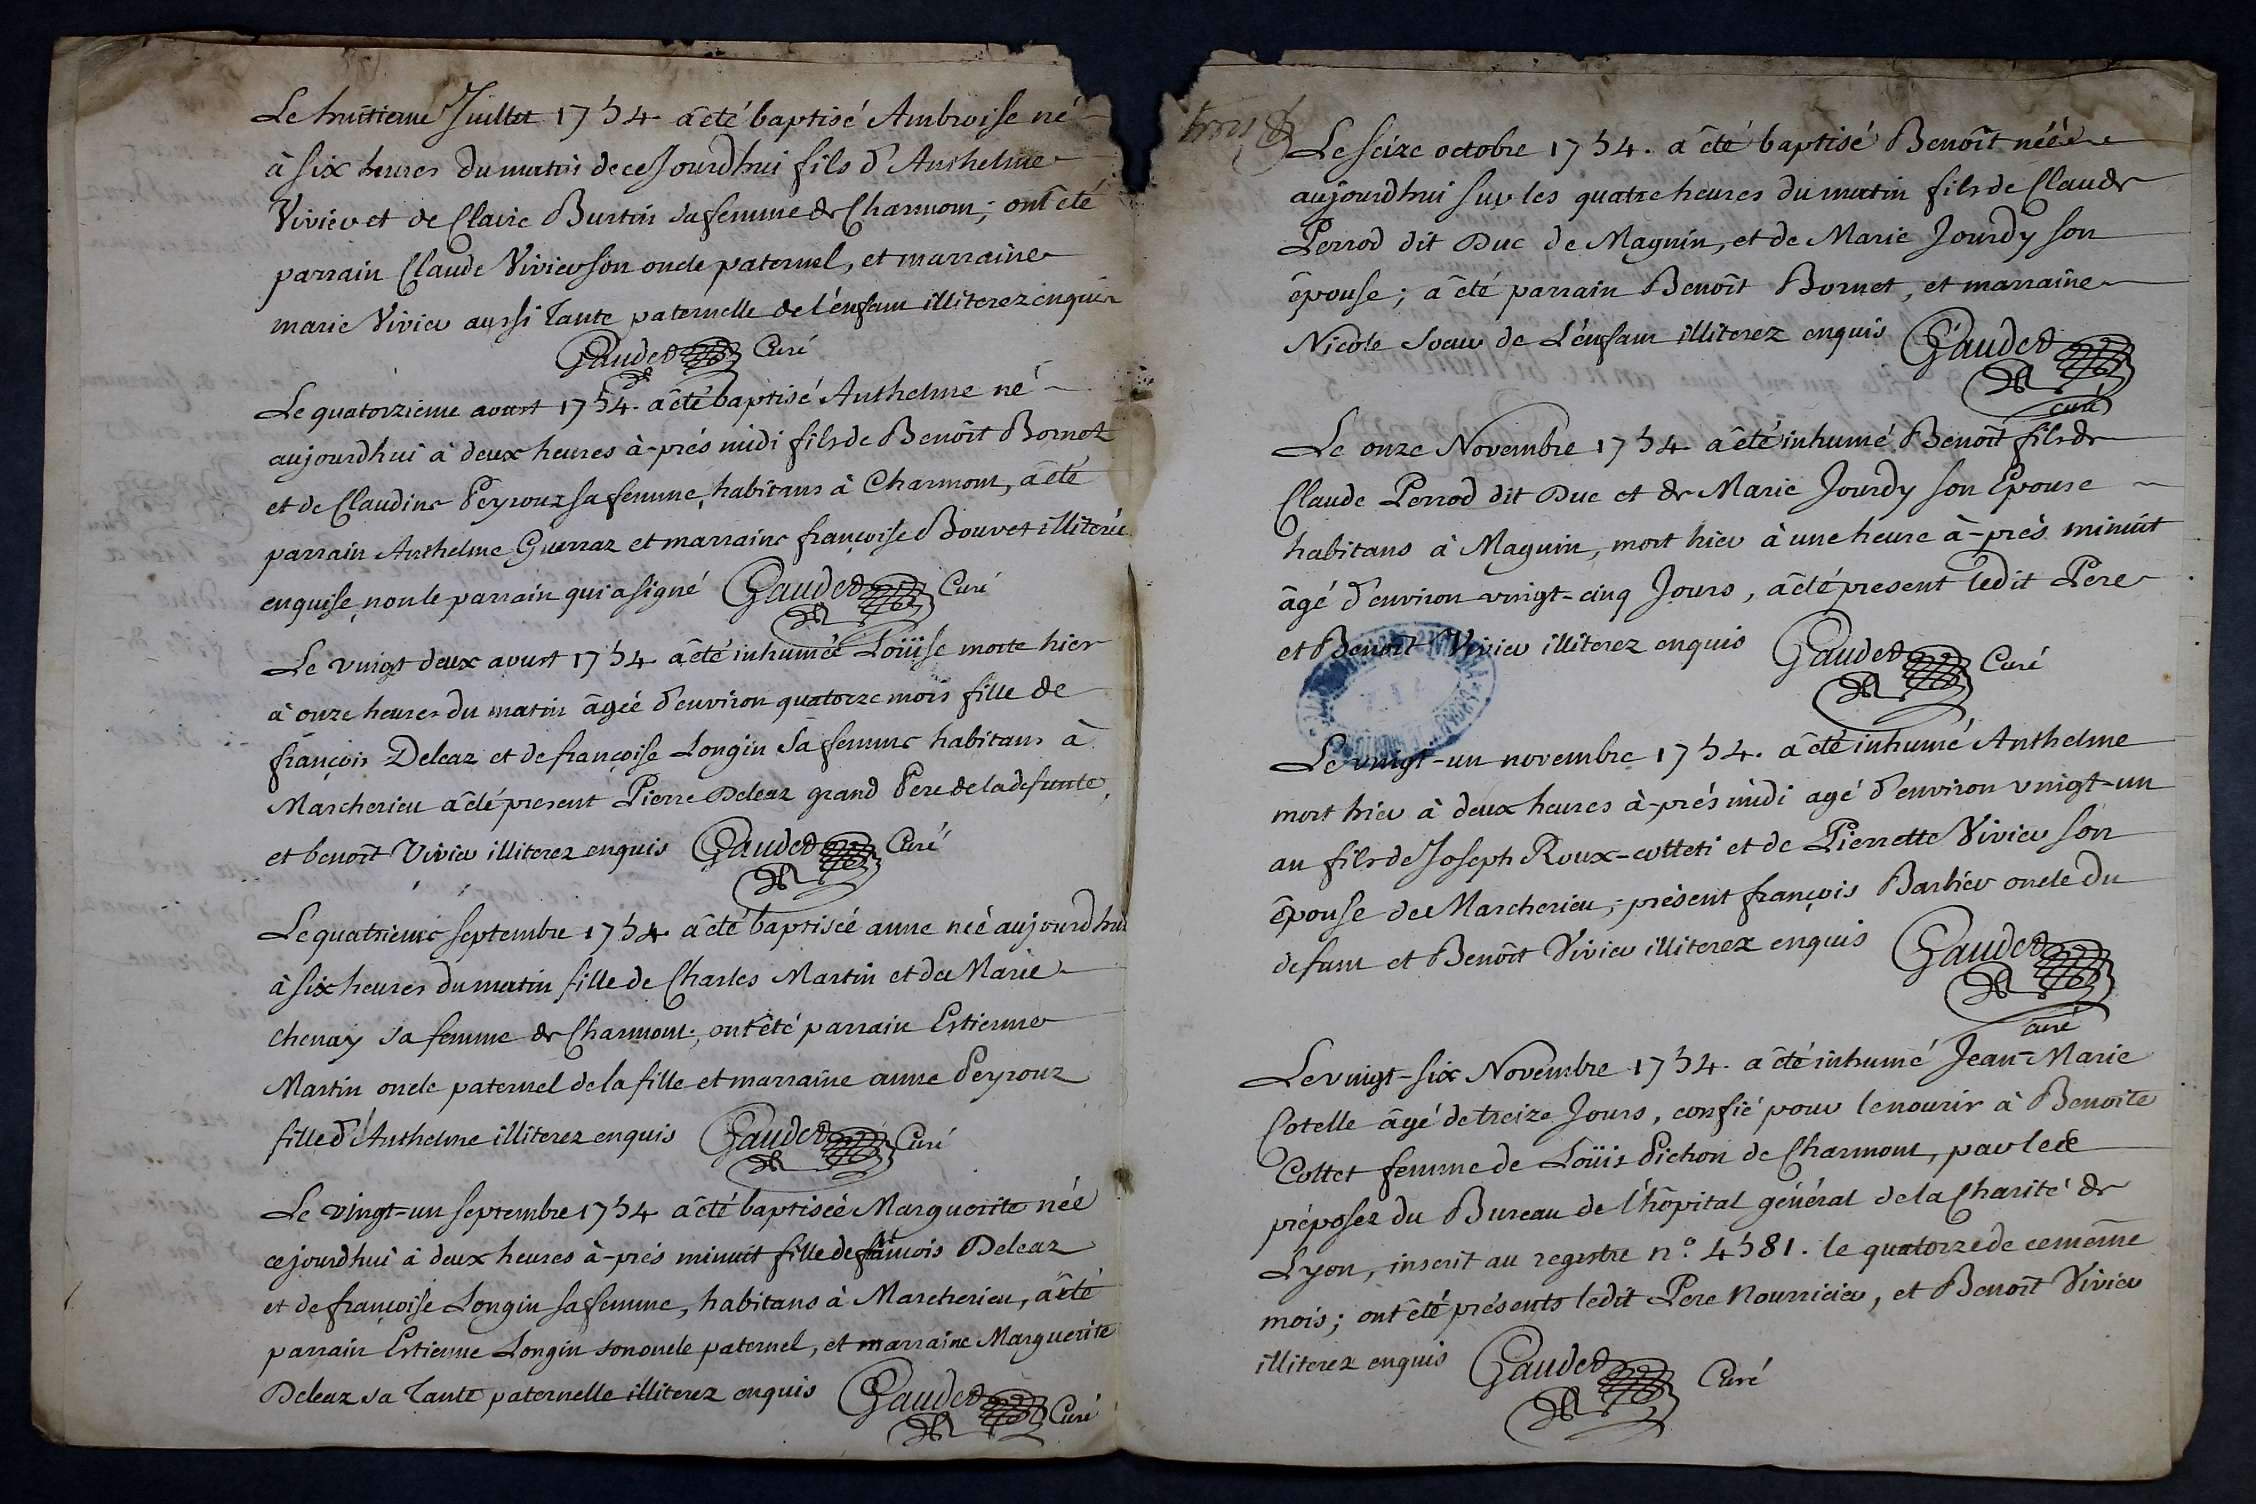 Le huitieme Juillet 1754 a été baptisé Ambroise né
à six heures du matin de ce Jourdhui fils d'Anthelme
Vivier et de Claire Burtin sa femme de Charmont; ont été
parrain Claude Vivier son oncle paternel, et marraine
marie Vivier aussi Tante paternelle de l'enfant illiterez enquis
Gaudet Curé
Le quatorzieme aoust 1754. a été baptisé Anthelme né
aujourdhui à deux heures à-prés midi fils de Benoît Bornet
et de Claudine Peyrouz sa femme, habitans à Charmont, a été
parrain Anthelme Guerraz et marraine françoise Bouvet illiterée
enquise, non le parrain qui a signé Gaudet Curé
Le vingt deux aoust 1754 a été inhumée Loüise morte hier
à onze heures du matin âgéé d'environ quatorze mois fille de
françois Deleaz et de françoise Longin sa femme habitans à
Marcherieu a été present Pierre Deleaz grand Pere de la defunte,
et benoît Vivier illiterez enquis Gaudet Curé
Le quatrieme septembre 1754 a été baptiséé anne néé aujourdhui
à six heures du matin fille de Charles Martin et de Marie
Chenay sa femme de Charmont; ont été parrain Estienne
Martin oncle paternel de la fille et marraine anne Peyrouz
fille d'Anthelme illiterez enquis Gaudet Curé
Le vingt-un septembre 1754 a été baptiséé Marguerite néé
cejourdhui à deux heures à-prés minuit fille de françois Deleaz
et de françoise Longin sa femme, habitans à Marcherieu, a été
parrain Estienne Longin son oncle paternel, et marraine Marguerite
Deleaz sa Tante paternelle illiterez enquis Gaudet Curé
trois
Le seize octobre 1754. a été baptisé Benoît néé
aujourdhui sur les quatre heures du matin fils de Claude
Perrod dit Duc de Magnin, et de Marie Jourdy son
épouse; a été parrain Benoît Bornet, et marraine
Nicole soeur de L'enfant illiterez enquis Gaudet
curé
Le onze Novembre 1754 a été inhumé Benoît fils de
Claude Perrod dit Duc et de Marie Jourdy son Epouse
habitans à Magnin, mort hier à une heure à-prés minuit
âgé d'environ vingt-cinq Jours, a été present ledit Pere
et Benoît Vivier illiterez enquis Gaudet Curé
Le vingt-un novembre 1754. a été inhumé Anthelme
mort hier à deux heures à-prés midi agé d'environ vingt-un
an fils de Joseph Roux-colleti et de Pierrette Vivier son
épouse de Marcherieu; présent françois Barbier oncle du
defunt et Benoît Vivier illiterez enquis Gaudet
curé
Le vingt-six Novembre 1754. a été inhumé Jean-Marie
Cotelle âgé de treize Jours, confié pour le nourir à Benoite
Collet femme de Loüis Pichon de Charmont, par le
préposez du Bureau de l'hôpital général de la Charité de
Lyon, inscrit au registre n.º 4581. le quatorze de ce même
mois; ont été présents ledit Pere Nourricier, et Benoît Vivier
illiterez enquis Gaudet Curé